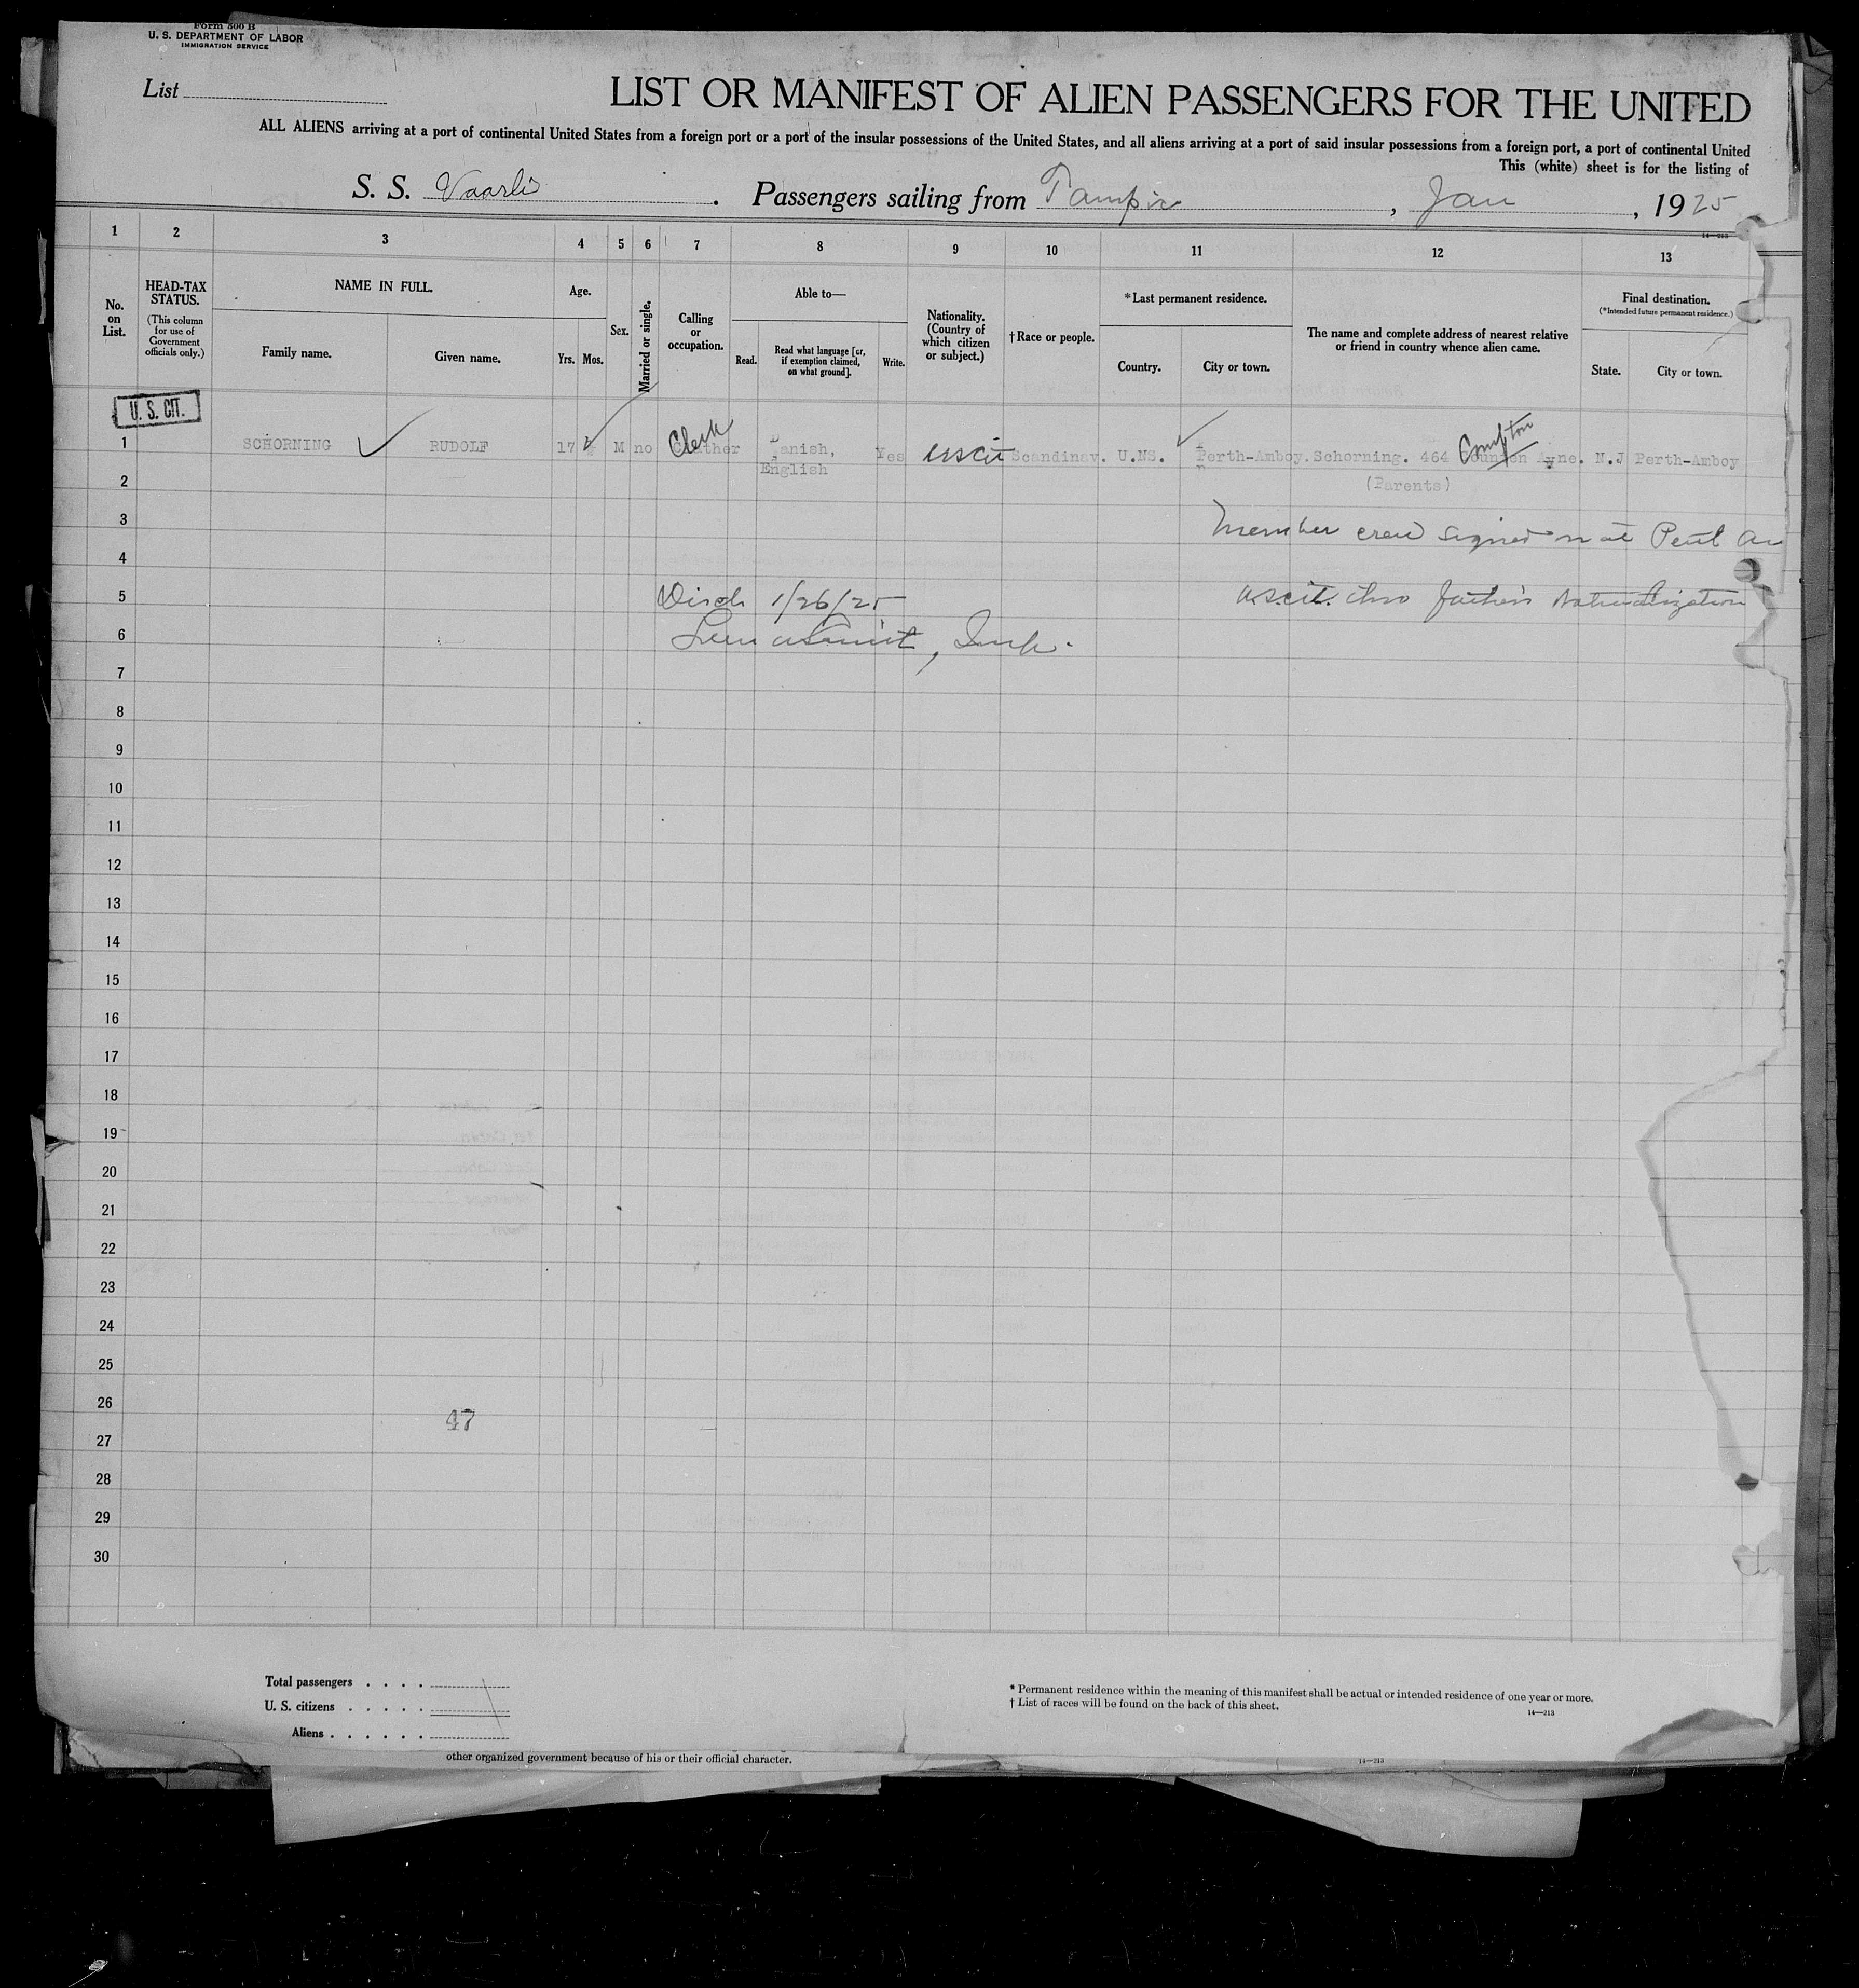 Form 500 B
U. S. DEPARTMENT OF LABOR
IMMIGRATION SERVICE
List
LIST OR MANIFEST OF ALIEN PASSENGERS FOR THE UNITED
ALL ALIENS arriving at a port of continental United States from a foreign port or a port of the insular possessions of the United States, and all aliens arriving at a port of said insular possessions from a foreign port, a port of continental United
This (white) sheet is for the listing of
S. S. Vaarli . Passengers sailing from Tampico , Jan , 1925
14—213
1 2 3 4 5 6 7 8 9 10 11 12 13
No. on List.
HEAD-TAX STATUS.
(This column for use of Government officials only.)
NAME IN FULL.
Family name. Given name.
Age.
Yrs. Mos.
Sex.
Married or single.
Calling or occupation.
Able to—
Read. Read what language [or, if exemption claimed, on what ground]. Write.
Nationality. (Country of which citizen or subject.)
† Race or people.
*Last permanent residence.
Country. City or town.
The name and complete address of nearest relative or friend in country whence alien came.
Final destination.
(*Intended future permanent residence.)
State. City or town.
U. S. CIT.
1 SCHORNING RUDOLF 17 M no Clerk Danish, Yes US Cit Scandinav. U.NS. Perth-Amboy. Schorning. 464 Compton Ayne. N.J Perth-Amboy
English
2 (Parents)
3 Member crew signed on at
4
5 Disch 1/26/25 U.S. cit. thro father's Naturalization
6 Insp.
7
8
9
10
11
12
13
14
15
16
17
18
19
20
21
22
23
24
25
26 47
27
28
29
30
Total passengers . . . .
U. S. citizens . . . . .
Aliens . . . . . .
* Permanent residence within the meaning of this manifest shall be actual or intended residence of one year or more.
† List of races will be found on the back of this sheet.
14—213
other organized government because of his or their official character.
14—213